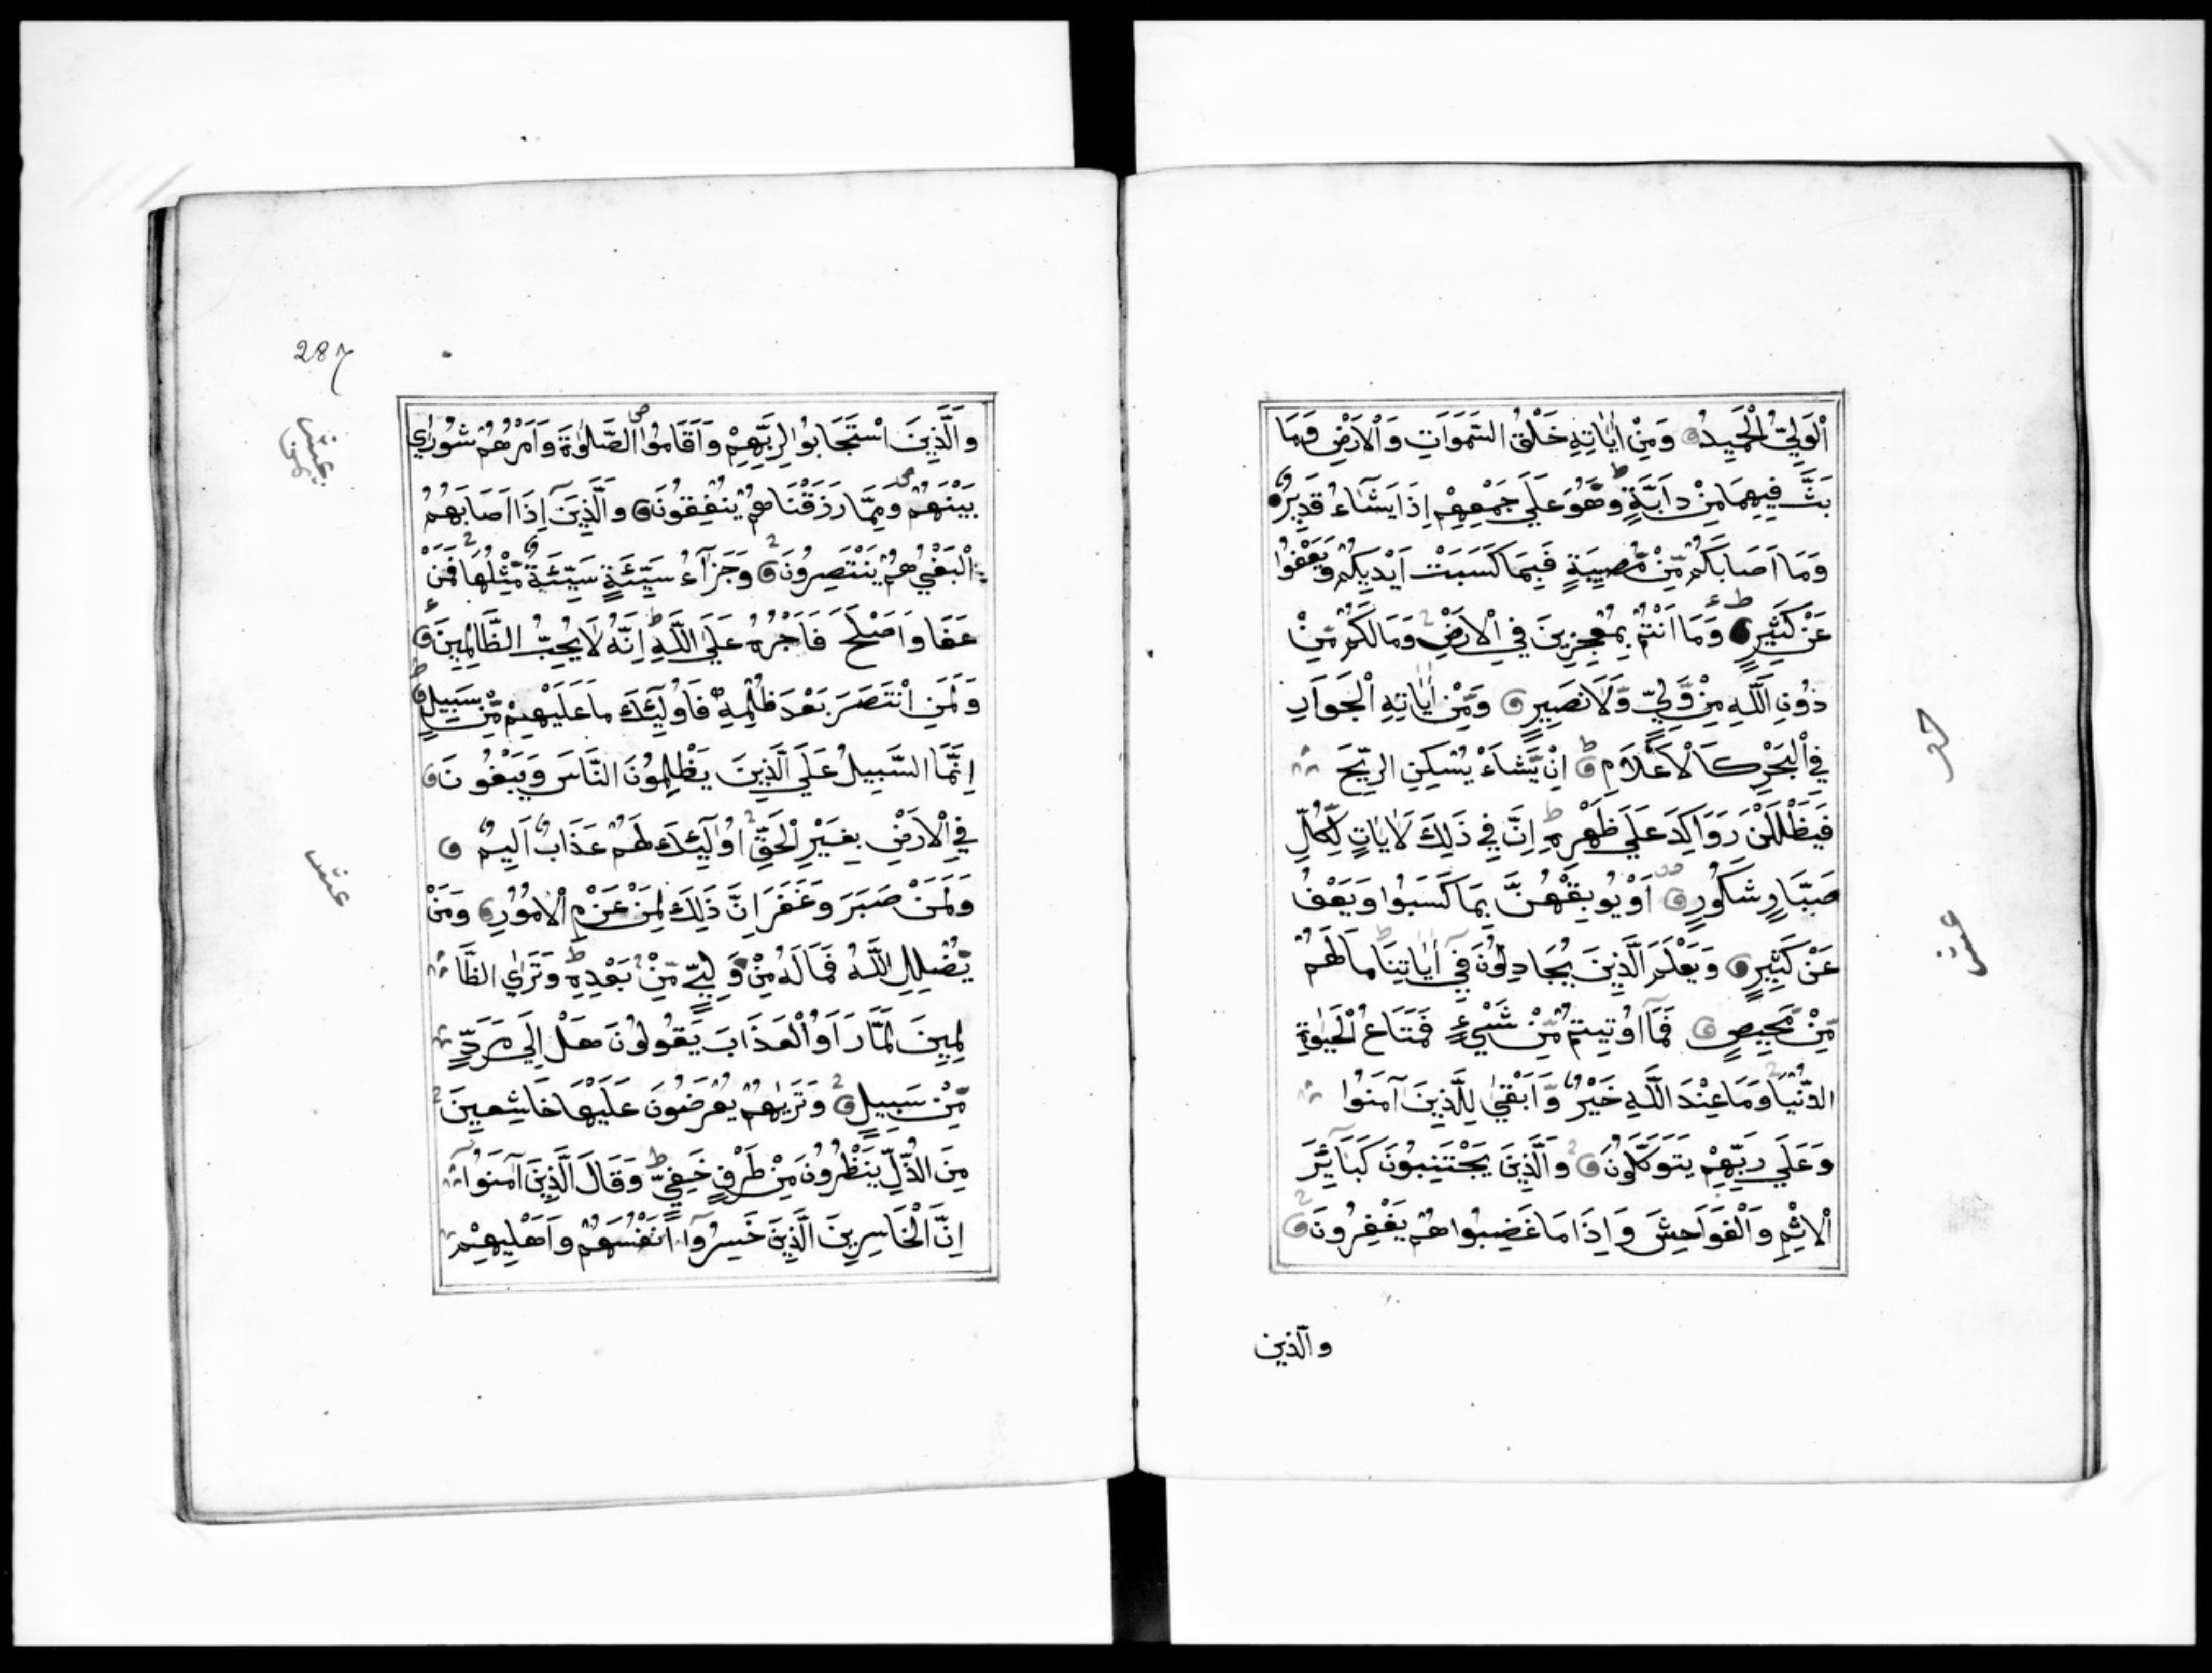 اَلْوَلِيُّ الْحَمِيدُ وَمِنْ اٰيَاتِهٖ خَلْقُ السَّمَوَاتِ وَالْاَرْضِ وَمَا
بَثَّ فِيهِمَا مِنْ دَابَّةٍ وَهُوَ عَلَي جَمْعِهِمْ اِذَا يَشَآءُ قَدِيرٌ
وَمَا اَصَابَكُمْ مِّنْ مُّصِيبَةٍ فَبِمَا كَسَبَتْ اَيْدِيكُمْ وَيَعْفُوا
عَنْ كَثِيرٍ وَمَا اَنْتُمْ بِمُعْجِزِينَ فِي الْاَرْضِ وَمَا لَكُمْ مِّنْ
دُوْنِ اللَّهِ مِنْ وَّلِيٍّ وَّلَا نَصِيرٍ وَمِنْ اٰيَاتِهِ الْجَوَارِ
فِي الْبَحْرِ كَالْاَعْلَامِ اِنْ يَّشَاءْ يُسْكِنِ الرِّيحَ
فَيَظْلَلْنَ رَوَاكِدَ عَلَي ظَهْرِهٖ اِنَّ فِي ذَلِكَ لَاٰيَاتٍ لِّكُلِّ
صَبَّارٍ شَكُورٍ اَوْ يُوبِقْهُنَّ بِمَا كَسَبُوا وَيَعْفُ
عَنْ كَثِيرٍ وَيَعْلَمَ الَّذِينَ يُجَادِلُونَ فِي اٰيَاتِنَا مَا لَهُمْ
مِّنْ مَّحِيصٍ فَمَا اُوتِيتُمْ مِّنْ شَيْءٍ فَمَتَاعُ الْحَيٰوةِ
الدُّنْيَا وَمَا عِنْدَ اللَّهِ خَيْرٌ وَّاَبْقٰي لِلَّذِينَ آمَنُوا
وَعَلَي رَبِّهِمْ يَتَوَكَّلُونَ وَالَّذِينَ يَجْتَنِبُونَ كَبَآئِرَ
الْاِثْمِ وَالْفَوَاحِشَ وَاِذَا مَا غَضِبُوا هُمْ يَغْفِرُونَ
والذين
حم
عشر
287
وَالَّذِينَ اسْتَجَابُوا لِرَبِّهِمْ وَاَقَامُوا الصَّلٰوةَ وَاَمْرُهُمْ شُورٰي
بَيْنَهُمْ وَمِمَّا رَزَقْنَاهُمْ يُنْفِقُونَ وَالَّذِينَ اِذَا اَصَابَهُمُ
الْبَغْيُ هُمْ يَنْتَصِرُونَ وَجَزَآءُ سَيِّئَةٍ سَيِّئَةٌ مِّثْلُهَا فَمَنْ
عَفَا وَاَصْلَحَ فَاَجْرُهُ عَلَي اللَّهِ اِنَّهُ لَا يُحِبُّ الظَّالِمِينَ
وَلَمَنِ انْتَصَرَ بَعْدَ ظُلْمِهٖ فَاُولَئِكَ مَا عَلَيْهِمْ مِّنْ سَبِيلٍ
اِنَّمَا السَّبِيلُ عَلَي الَّذِينَ يَظْلِمُونَ النَّاسَ وَيَبْغُونَ
فِي الْاَرْضِ بِغَيْرِ الْحَقِّ اُولَآئِكَ لَهُمْ عَذَابٌ اَلِيمٌ
وَلَمَنْ صَبَرَ وَغَفَرَ اِنَّ ذَلِكَ لَمِنْ عَزْمِ الْاُمُوْرِ وَمَنْ
يُّضْلِلِ اللَّهُ فَمَا لَهُ مِنْ وَّلِيٍّ مِّنْ بَعْدِهٖ وَتَرَي الظَّا
لِمِينَ لَمَّا رَاَوُا الْعَذَابَ يَقُولُونَ هَلْ اِلَي مَرَدٍّ
مِّنْ سَبِيلٍ وَتَرٰيهُمْ يُعْرَضُونَ عَلَيْهَا خَاشِعِينَ
مِنَ الذُّلِّ يَنْظُرُونَ مِنْ طَرْفٍ خَفِيٍّ وَقَالَ الَّذِينَ آمَنُوا
اِنَّ الْخَاسِرِينَ الَّذِينَ خَسِرُوآ اَنْفُسَهُمْ وَاَهْلِيهِمْ
عشر